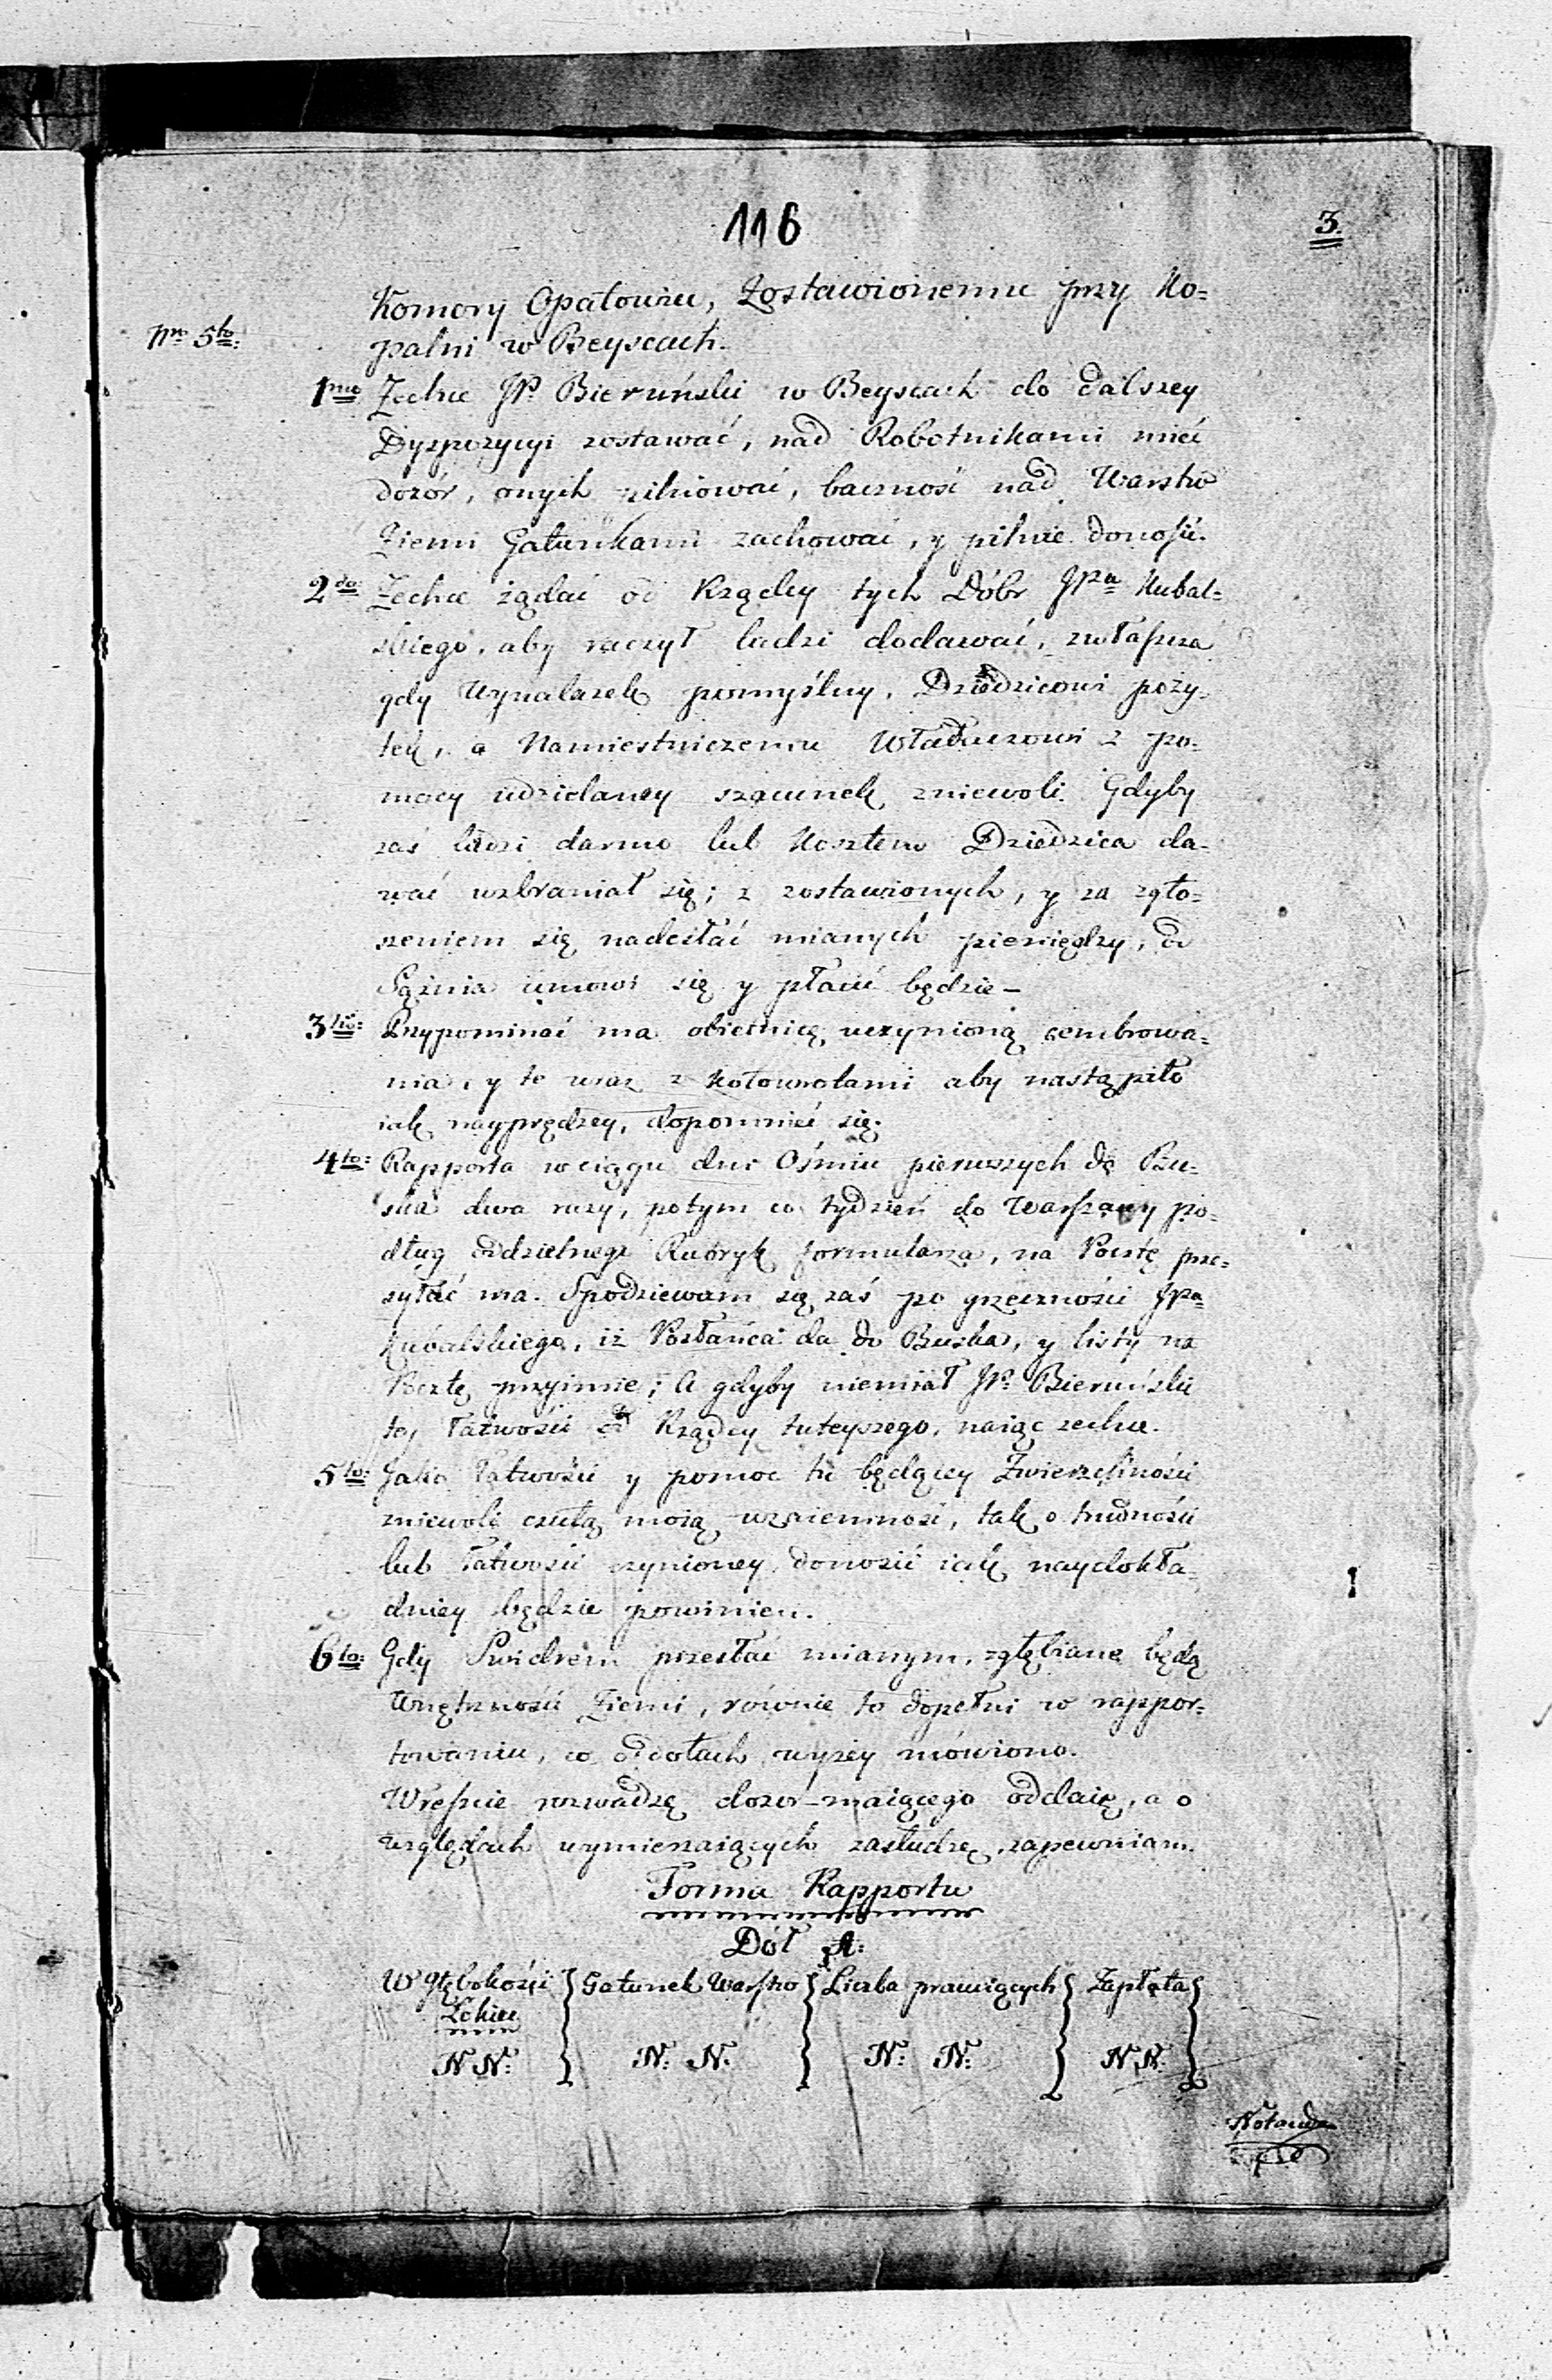 116
3.
Komory Opatowiu, Zostawionemu przy Ko=
Nro 5to:
palni w Beyscach.
1mo Zechce JP. Bieruński w Beyscach do dalszey
Dyspozycyi zostawać, nad Robotnikami mieć
dozór, onych pilnować, baczność nad Warstw
Ziemi Gatunkami zachować, y pilnie donosić.
2do: Zechce żądać od Rządcy tych Dóbr JPa Kubal=
skiego, aby raczył ludzi dodawać, zwłaszcza
gdy Wynalazek pomyślny, Dziedzicowi poży=
tek, a Namiestniczemu Władzcowi z po=
mocy udzielaney szacunek zniewoli. Gdyby
zaś ludzi darmo lub Kosztem Dziedzica da=
wać wzbraniał się; z zostawionych, y za zgło=
szeniem się nadesłać mianych pieniędzy, od
Sążnia umówi się y płacić będzie –
3tio: Przypominać ma obietnicę uczynioną cembrowa=
nia, y te wraz z Kołowrotami aby nastąpiło
iak nayprędzey, dopomnieć się.
4to: Rapporta w ciągu dni Ośmiu pierwszych do Bu=
ska dwa razy, potym co tydzień do Warszawy po=
dług oddzielnego Rubryk formularza, na Pocztę prze=
syłać ma. Spodziewam się zaś po grzeczności JPa
Kubalskiego, iż Posłańca da do Buska, y listy na
Pocztę przyimie; A gdyby niemiał JP. Bieruński
tey łatwości od Rządcy tuteyszego, naiąć zechce.
5to: Jako łatwości y pomoc tu będącey Zwierzchności
zniewoli czułą moią wzaiemność, tak o trudności
lub łatwości czynioney donosić iak naydokła=
dniey będzie powinien.
6to: Gdy Swidrem przesłać mianym, zgłębiane będą
Wnętrzności Ziemi, równie to dopełni w rappor=
towaniu, co o dołach wyżey mówiono.
Wreszcie rozwadze dozór–maiącego oddaię, a o
względach wymierzaiących zasłudze, zapewniam.
Forma Rapportu
Dół A:
W głębokości } Gatunek Warstw } Liczba pracuiących } Zapłata }
Łokieć
N N: } N: N. } N: N: } N N. }
Notanda